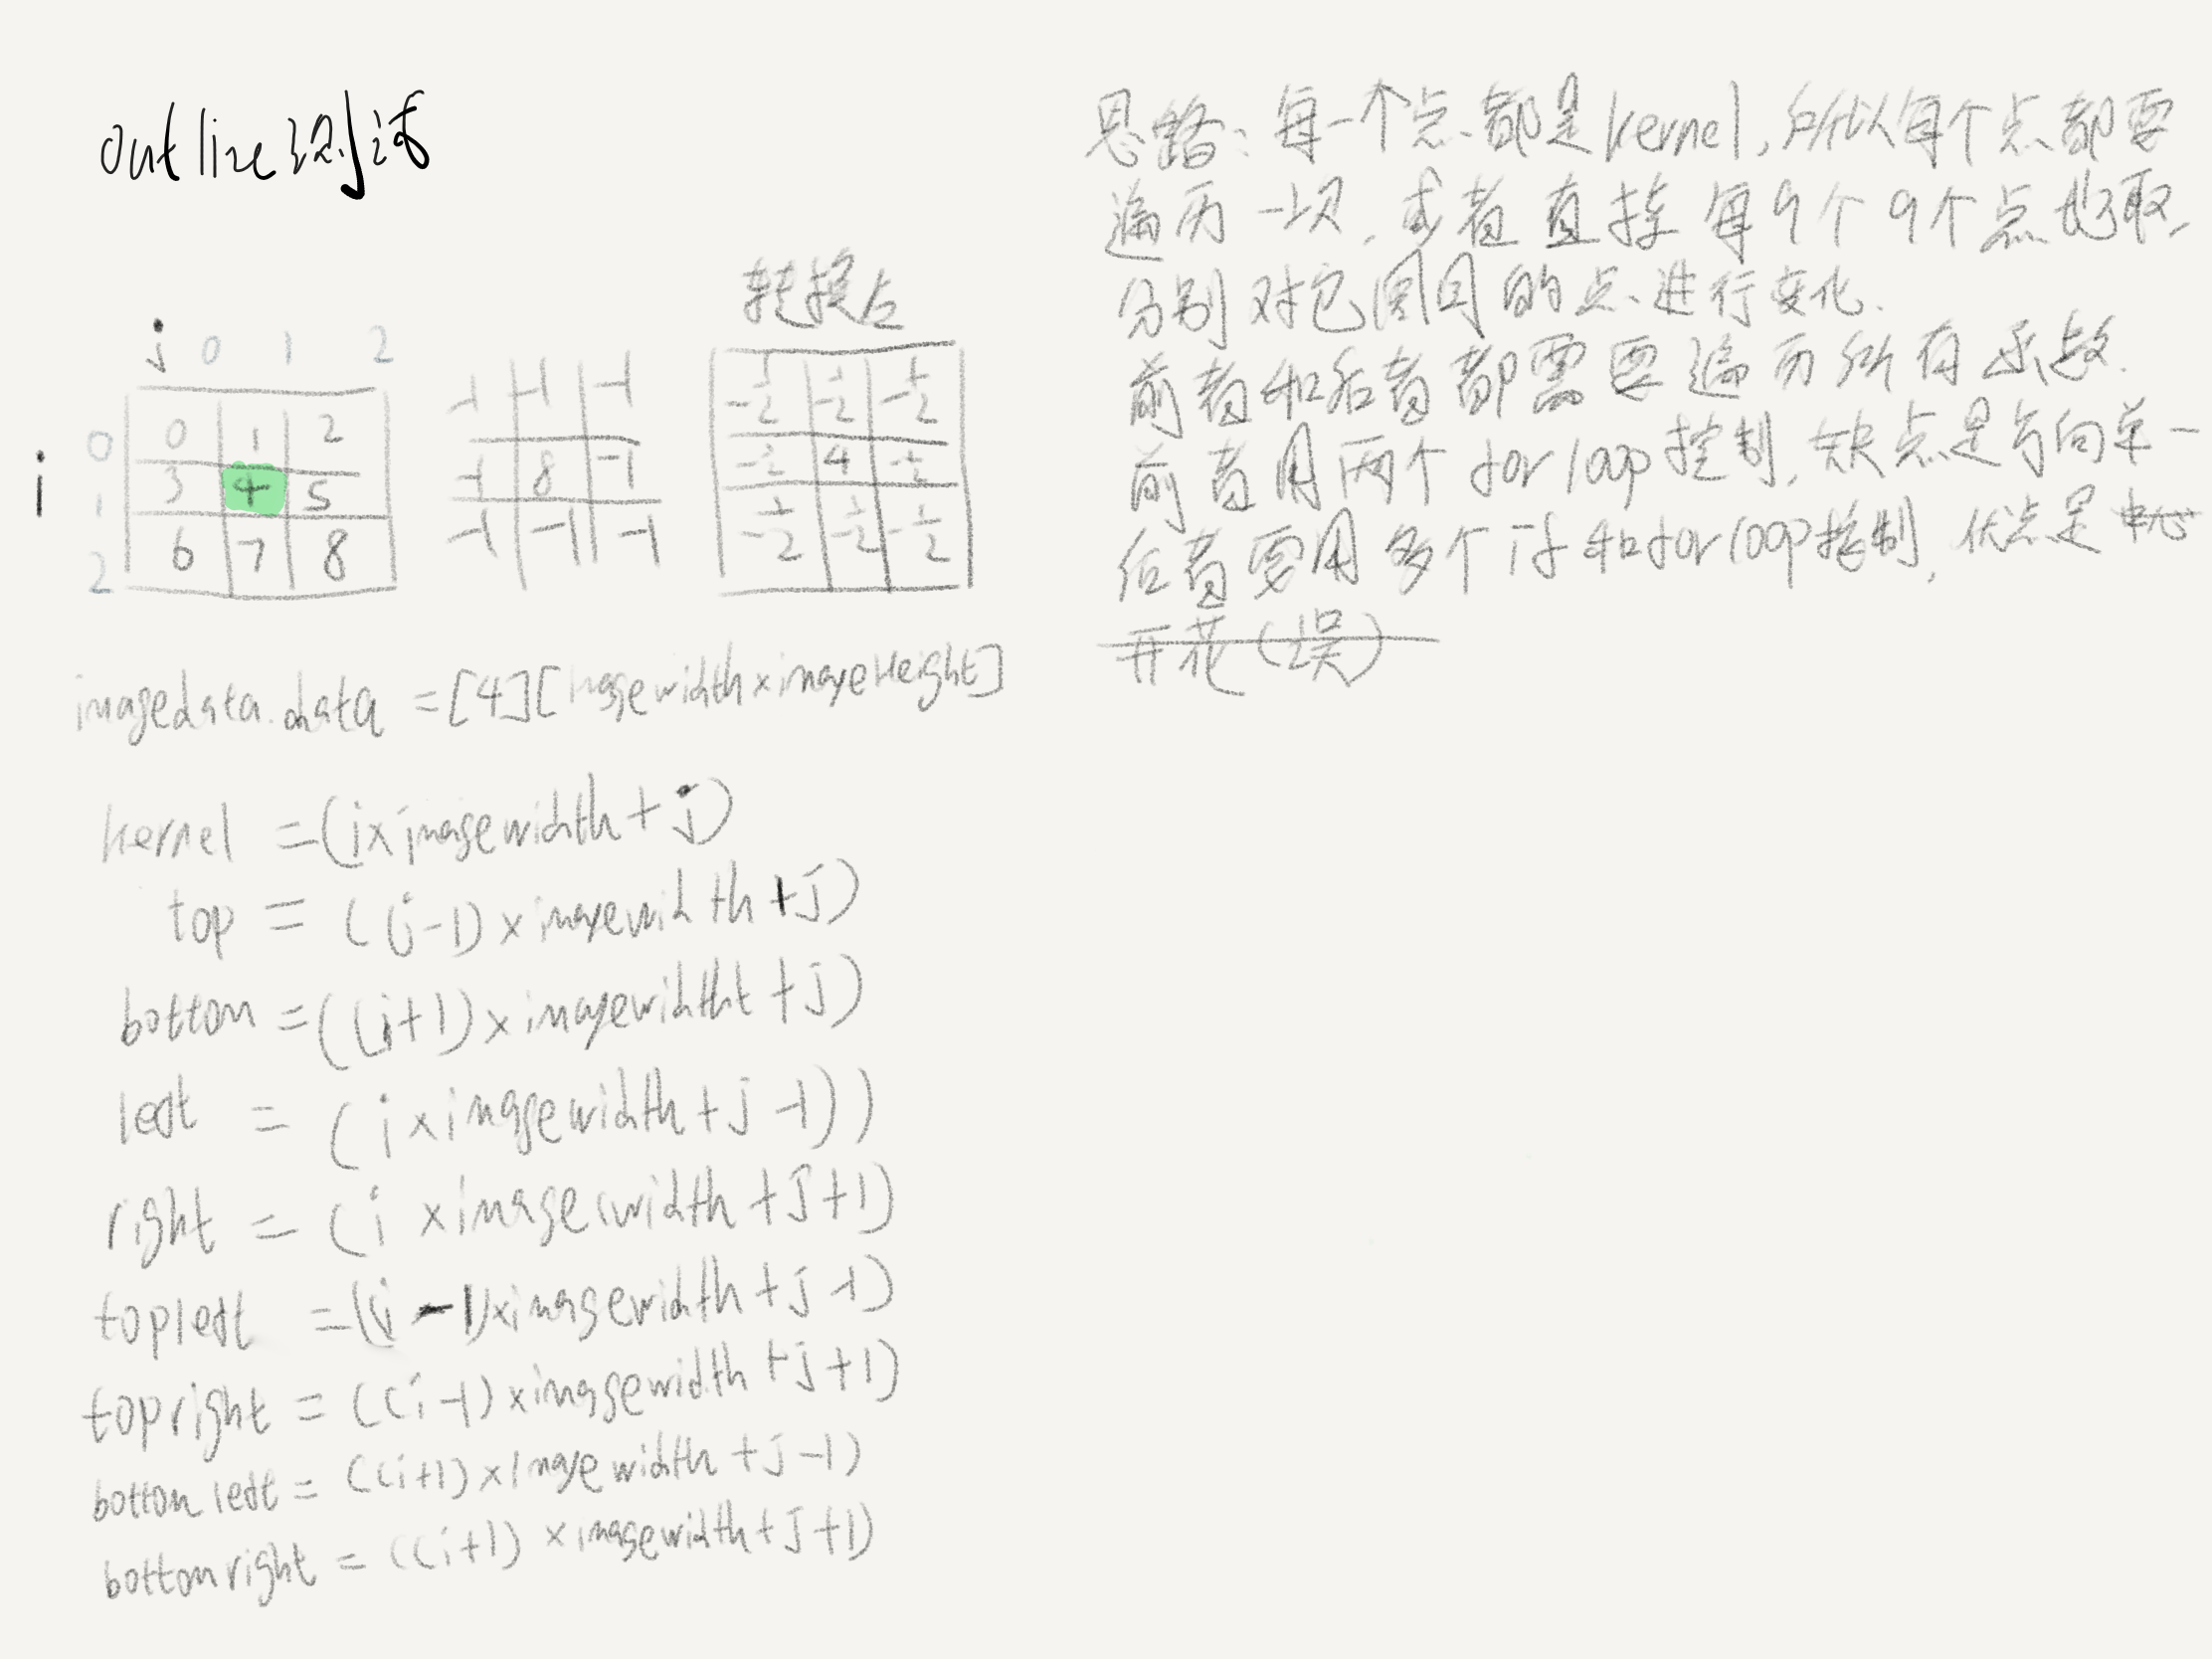 outline 测试
j 0 1 2
i
0 0 1 2
1 3 4 5
2 6 7 8
-1 -1 -1
-1 8 -1
-1 -1 -1
转换后
-1/2 -1/2 -1/2
-1/2 4 -1/2
-1/2 -1/2 -1/2
imagedata.data = [4][imagewidth×imageHeight]
kernel = (i×imagewidth+j)
top = ((i-1)×imagewidth+j)
bottom = ((i+1)×imagewidtht+j)
left = (i×imagewidth+j-1))
right = (i×imagewidth+j+1)
topleft = (i-1)×imagewidth+j-1)
topright = ((i-1)×imagewidth+j+1)
bottomleft = ((i+1)×imagewidth+j-1)
bottomright = ((i+1)×imagewidth+j+1)
思路: 每一个点都是kernel, 所以每个点都要
遍历一次, 或者直接每9个9个点地取,
分别对它周围的点进行变化.
前者和后者都需要遍历所有
前者用两个for loop控制, 缺点是方向单一
后者要用多个if和for loop控制, 优点是中心
开花(误)